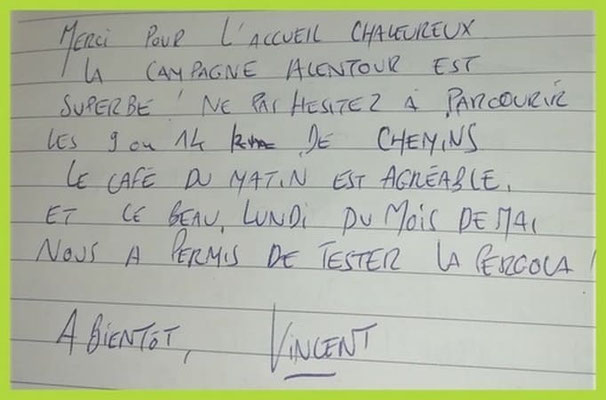 MERCI POUR L'ACCUEIL CHALEUREUX
LA CAMPAGNE ALENTOUR EST
SUPERBE ! NE PAS HESITEZ A PARCOURIR
LES 9 ou 14 km DE CHEMINS
LE CAFÉ DU MATIN EST AGRÉABLE.
ET CE BEAU LUNDI DU MOIS DE MAI
NOUS A PERMIS DE TESTER LA PERGOLA !
A BIENTÔT, VINCENT